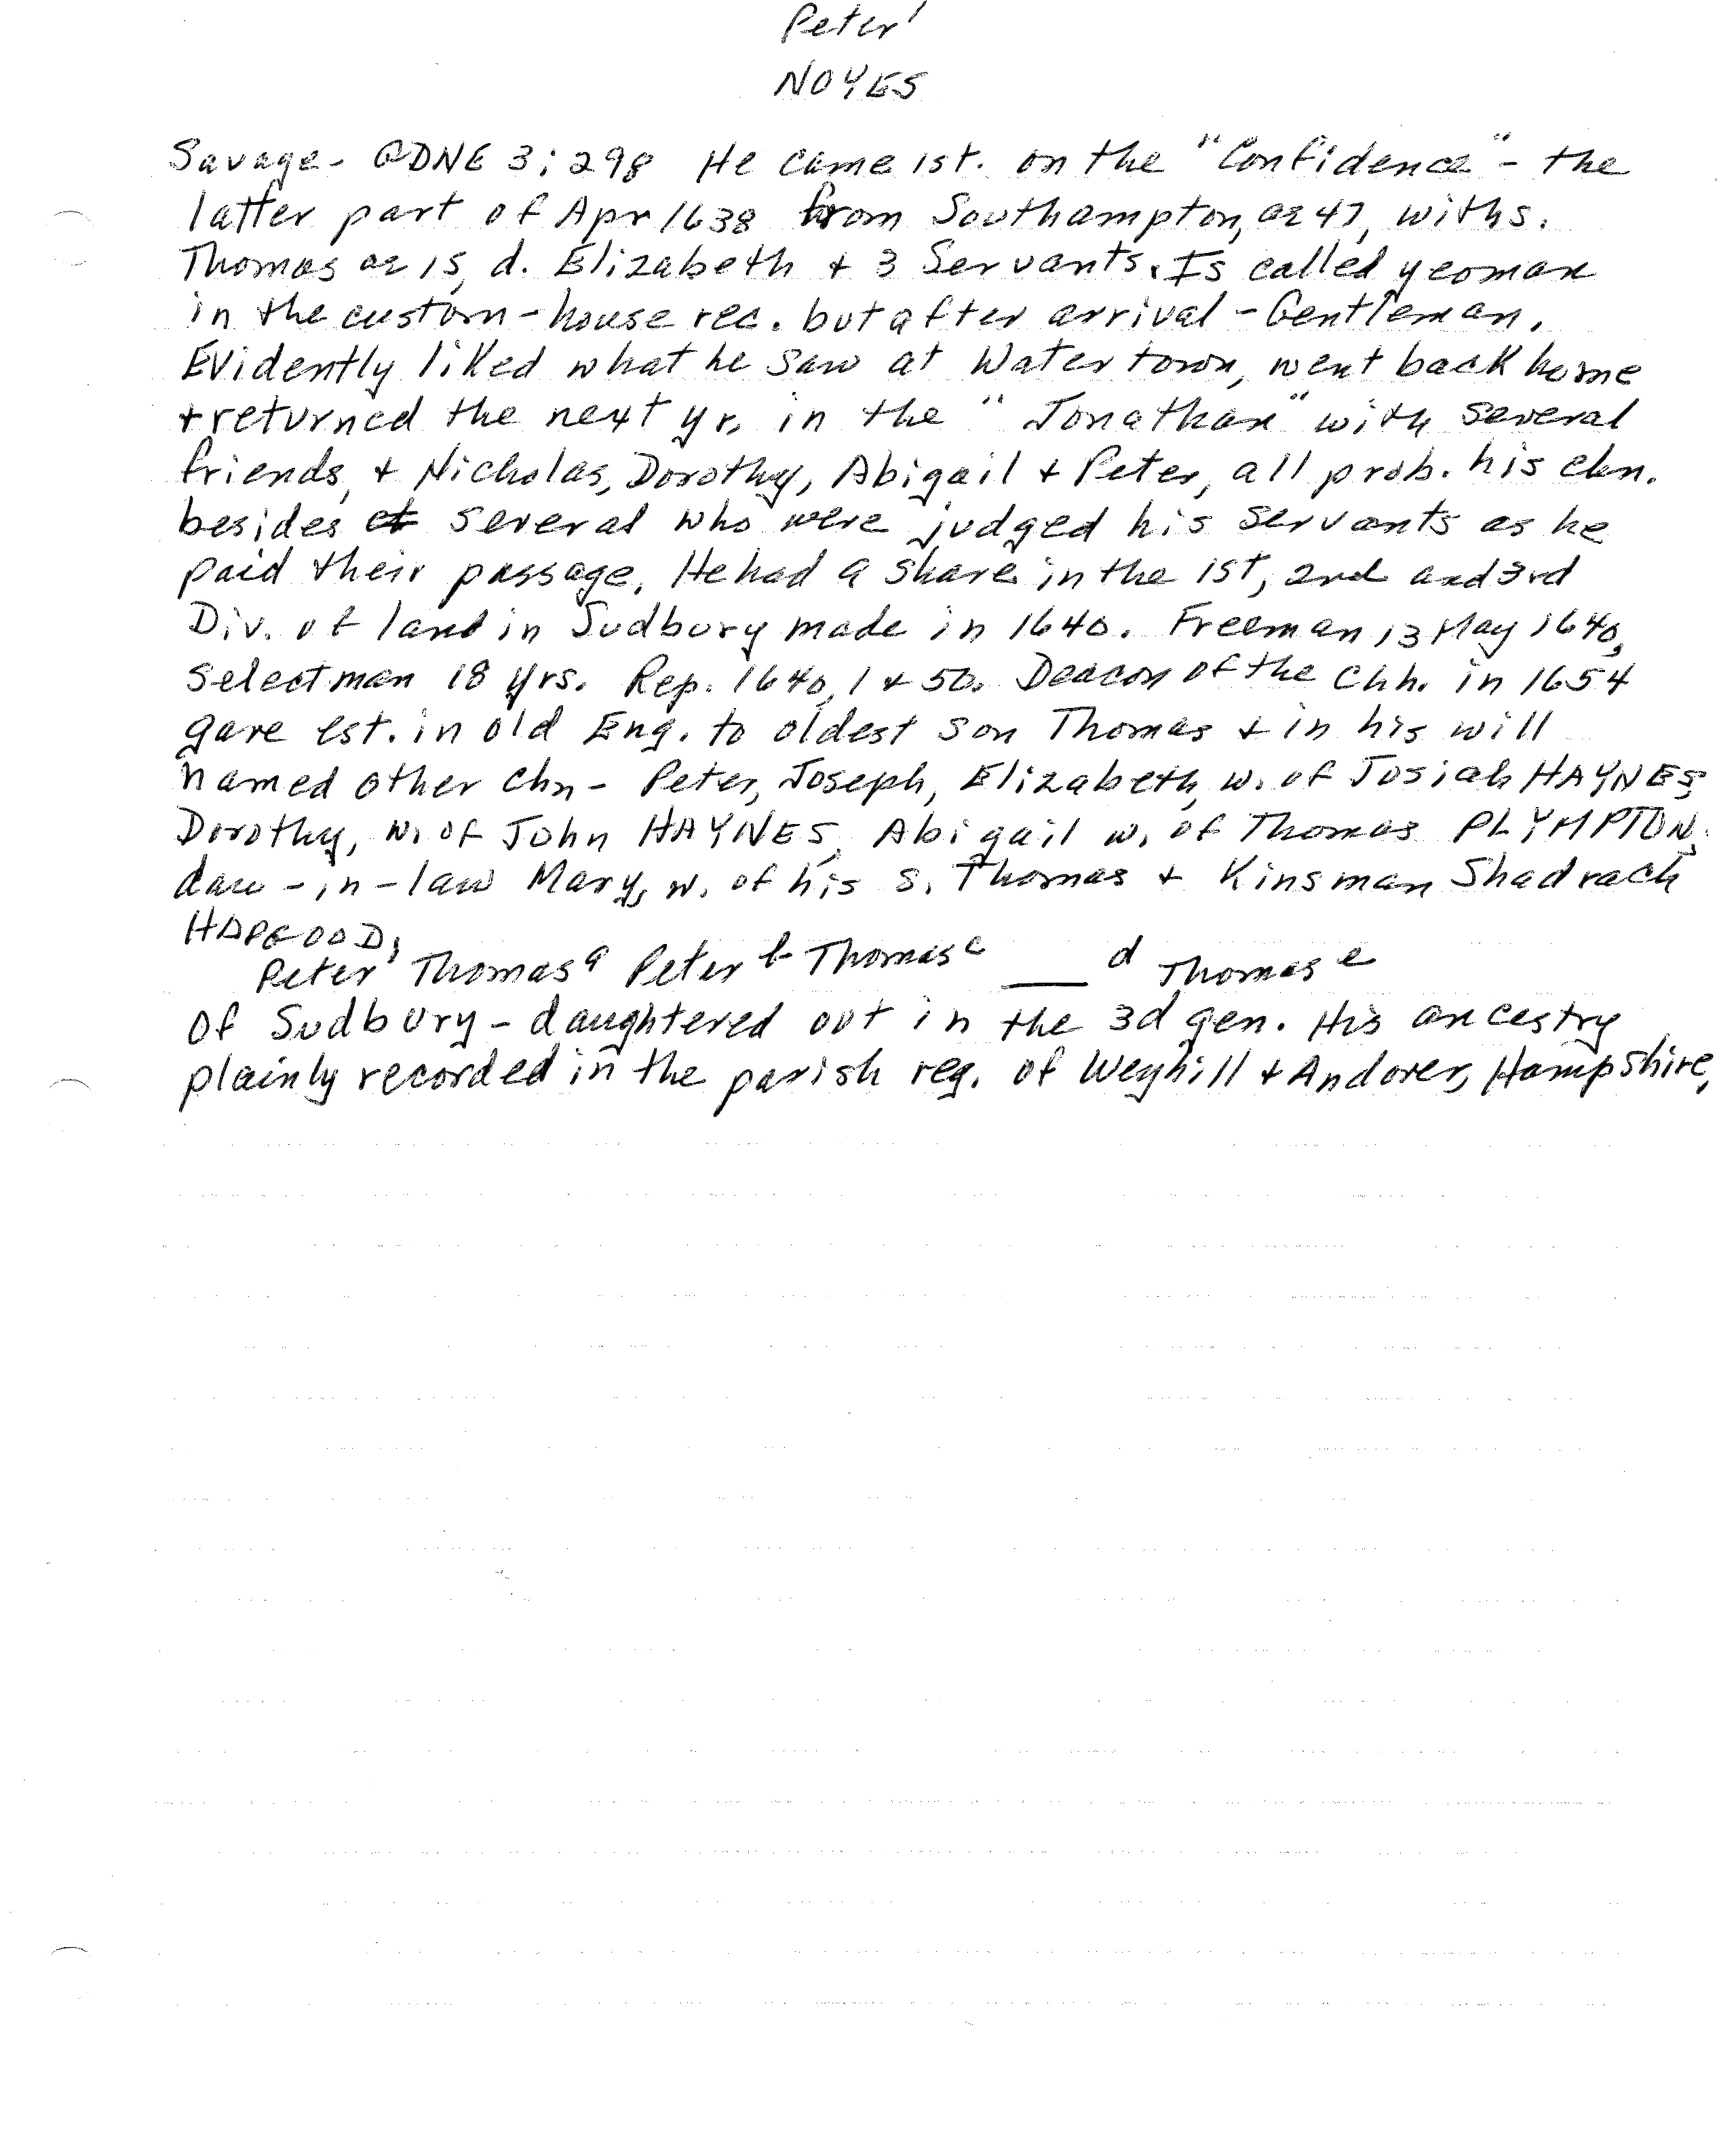 Peter¹
NOYES
Savage- GDNE 3:298 He came 1st. on the "Confidence" - the
latter part of Apr 1638 from Southampton, ae 47, with s.
Thomas ae 15, d. Elizabeth + 3 Servants. Is called yeoman
in the custom-house rec. but after arrival - Gentleman.
Evidently liked what he saw at Watertown, went back home
+ returned the next yr. in the "Jonathan" with several
friends, + Nicholas, Dorothy, Abigail + Peter, all prob. his chn.
besides several who were judged his servants as he
paid their passage. He had a share in the 1st, 2nd and 3rd
Div. of land in Sudbury made in 1640. Freeman 13 May 1640,
Selectman 18 yrs. Rep. 1640, 1 + 50. Deacon of the Chh. in 1654
gave est. in old Eng. to oldest son Thomas + in his will
named other chn- Peter, Joseph, Elizabeth, w. of Josiah HAYNES,
Dorothy, w. of John HAYNES, Abigail w. of Thomas PLYMPTON,
dau-in-law Mary, w. of his s. Thomas + Kinsman Shadrach
HAPGOOD.
Peter¹ Thomasᵃ Peterᵇ Thomasᶜ ___ᵈ Thomasᵉ
of Sudbury - daughtered out in the 3d gen. His ancestry
plainly recorded in the parish reg. of Weyhill + Andover, Hampshire,